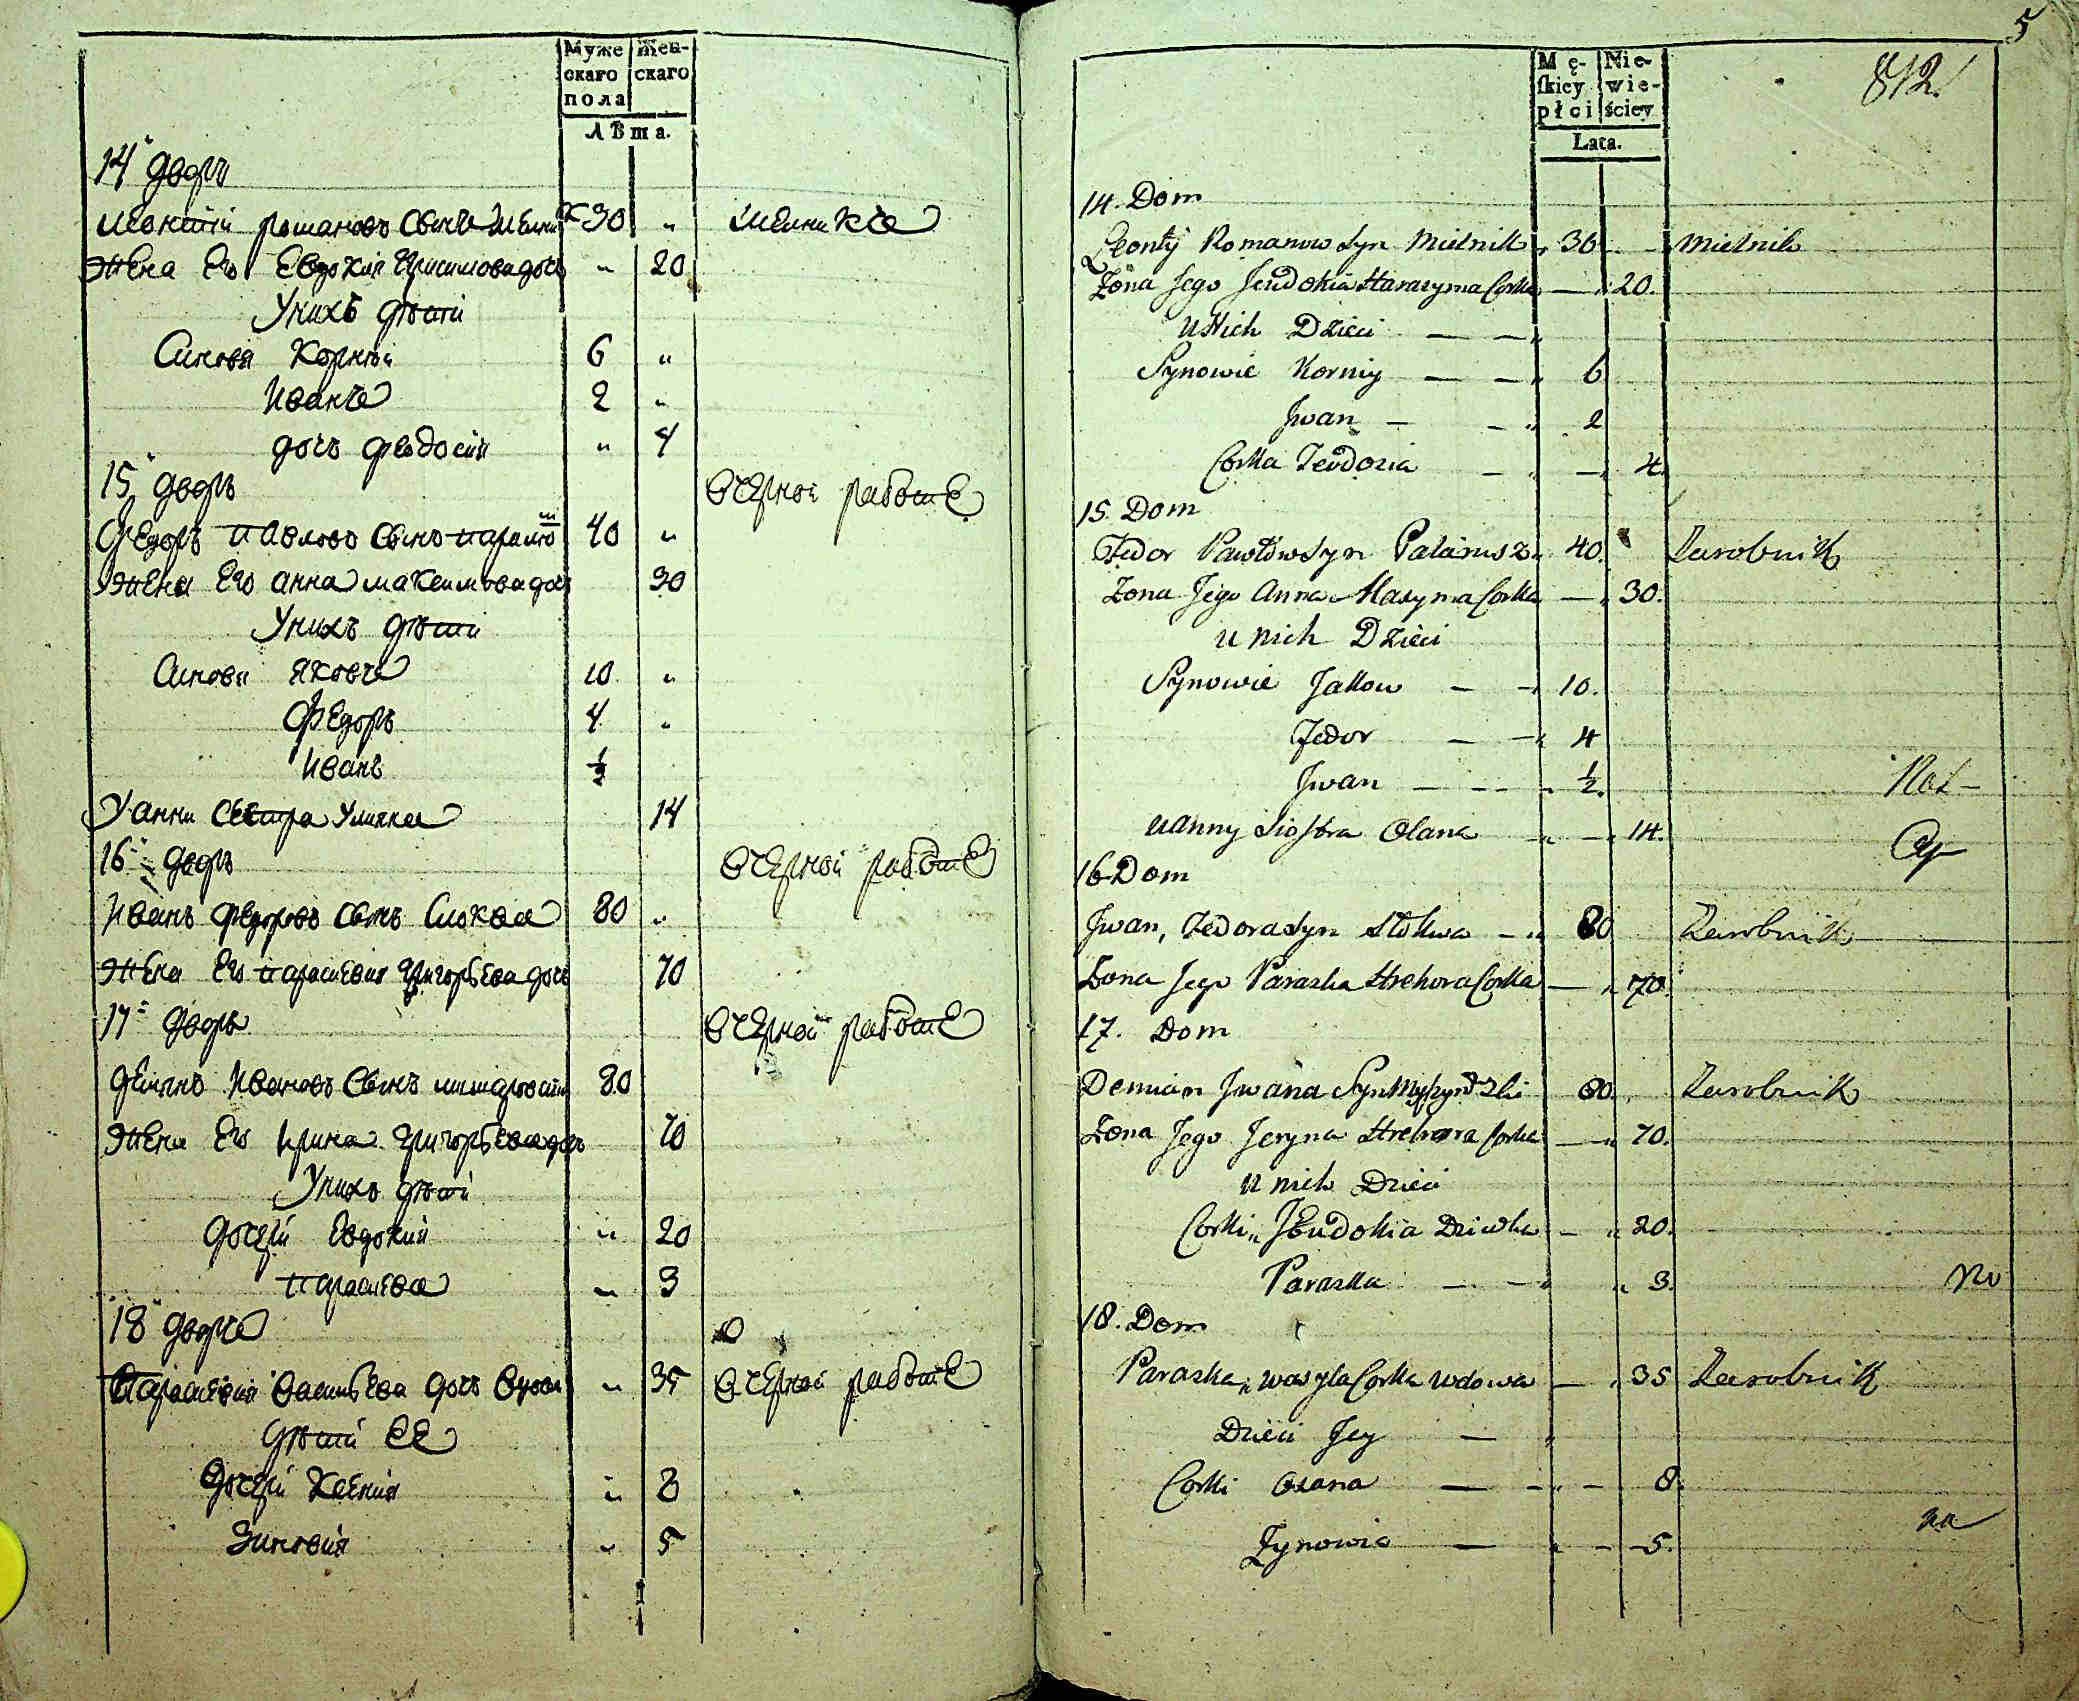 Муже Жен-
скаго скаго
пола
Лѣта.
14 дворъ
Леонтій Романовъ сынъ Мелник 30 „ Мелникъ
Жена Его Евдокия Герасимова дочь „ 20
У нихъ дѣти
Синовя Корній 6 „
Иванъ 2 „
дочь Феодосия „ 4
15 дворъ
в черной работе
Федоръ Павловъ сынъ 40 „
Жена Его Анна Максимова дочь 30
У нихъ дѣти
Синовя Яковъ 10 „
Федоръ 4 „
Иванъ ½
У Анни сестра Улияна 14
16 дворъ
в черной работе
Иванъ Федоровъ сынъ Слоква 80 „
Жена Его Параскевия Григорьева дочь 70
17 дворъ в черной работе
Демянъ Ивановъ сынъ 80
Жена Его Ирина Григорьева дочь 70
У нихъ дѣти
дочери Евдокия „ 20
Параскева „ 3
18 дворъ
Параскевия Васильева дочь вдова „ 35 в черной работе
дѣти ЕЕ
дочери Ксения „ 8
Зиновия „ 5
5
812
Mę- Nie-
ſkiey wie-
płci ściey
Lata.
14. Dom
Leonty Romanow Syn Mielnik „ 30 Mielnik
Żona Jego Jeudokia Harasyma Corka — „ 20.
u Nich Dzieci — — „
Synowie Korniy — — „ 6
Jwan — — „ 2
Corka Teodozia — „ — „ 4
15. Dom
Fedor Pawłów Syn Palamusz „ 40. Zarobnik
Zona Jego Anna Maxyma Corka — „ 30.
u nich Dzieci
Synowie Jakow — — 10.
Fedor — — „ 4
Jwan — — - ½.
u anny Siostra Olana „ — „ 14.
16 Dom
Jwan, Fedora Syn Slokwa — „ 80 Zarobnik
Zona Jego Paraska Hrehora Corka — „ 70.
17. Dom
Demian Jwana Syn 80. Zarobnik
Zona Jego Jeryna Hrehora Corka — „ 70.
u nich Dzieci
Corki „ Jeudokia Dziwka — „ 20.
Paraska — — „ „ 3.
no
18. Dom
Paraska „ wasyla Corka wdowa — „ 35 Zarobnik
Dzieci Jey — „
Corki Oxana — - „ - 8.
na
Zynowia — „ - 5.